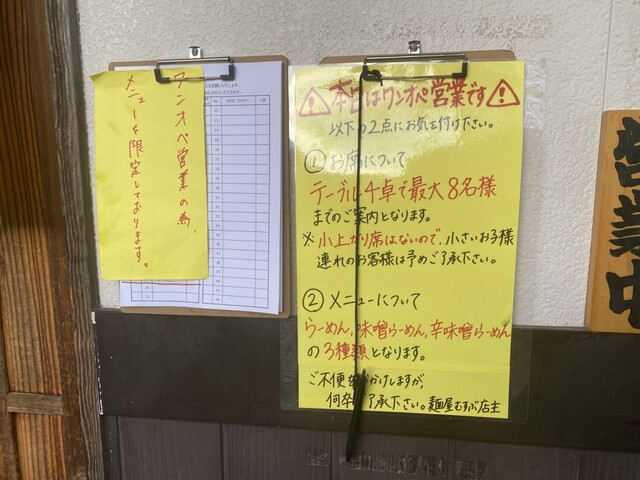 ワンオペ営業の為、
メニューを限定しております。
⚠本日はワンオペ営業です⚠
以下の2点にお気を付け下さい。
①お席について
テーブル4卓で最大8名様
までのご案内となります。
※小上がり席はないので、小さいお子様
連れのお客様は予めご了承下さい。
②メニューについて
らーめん,味噌らーめん,辛味噌らーめん
の3種類となります。
ご不便をおかけしますが、
何卒ご了承下さい。麺屋むすぶ店主
営業中